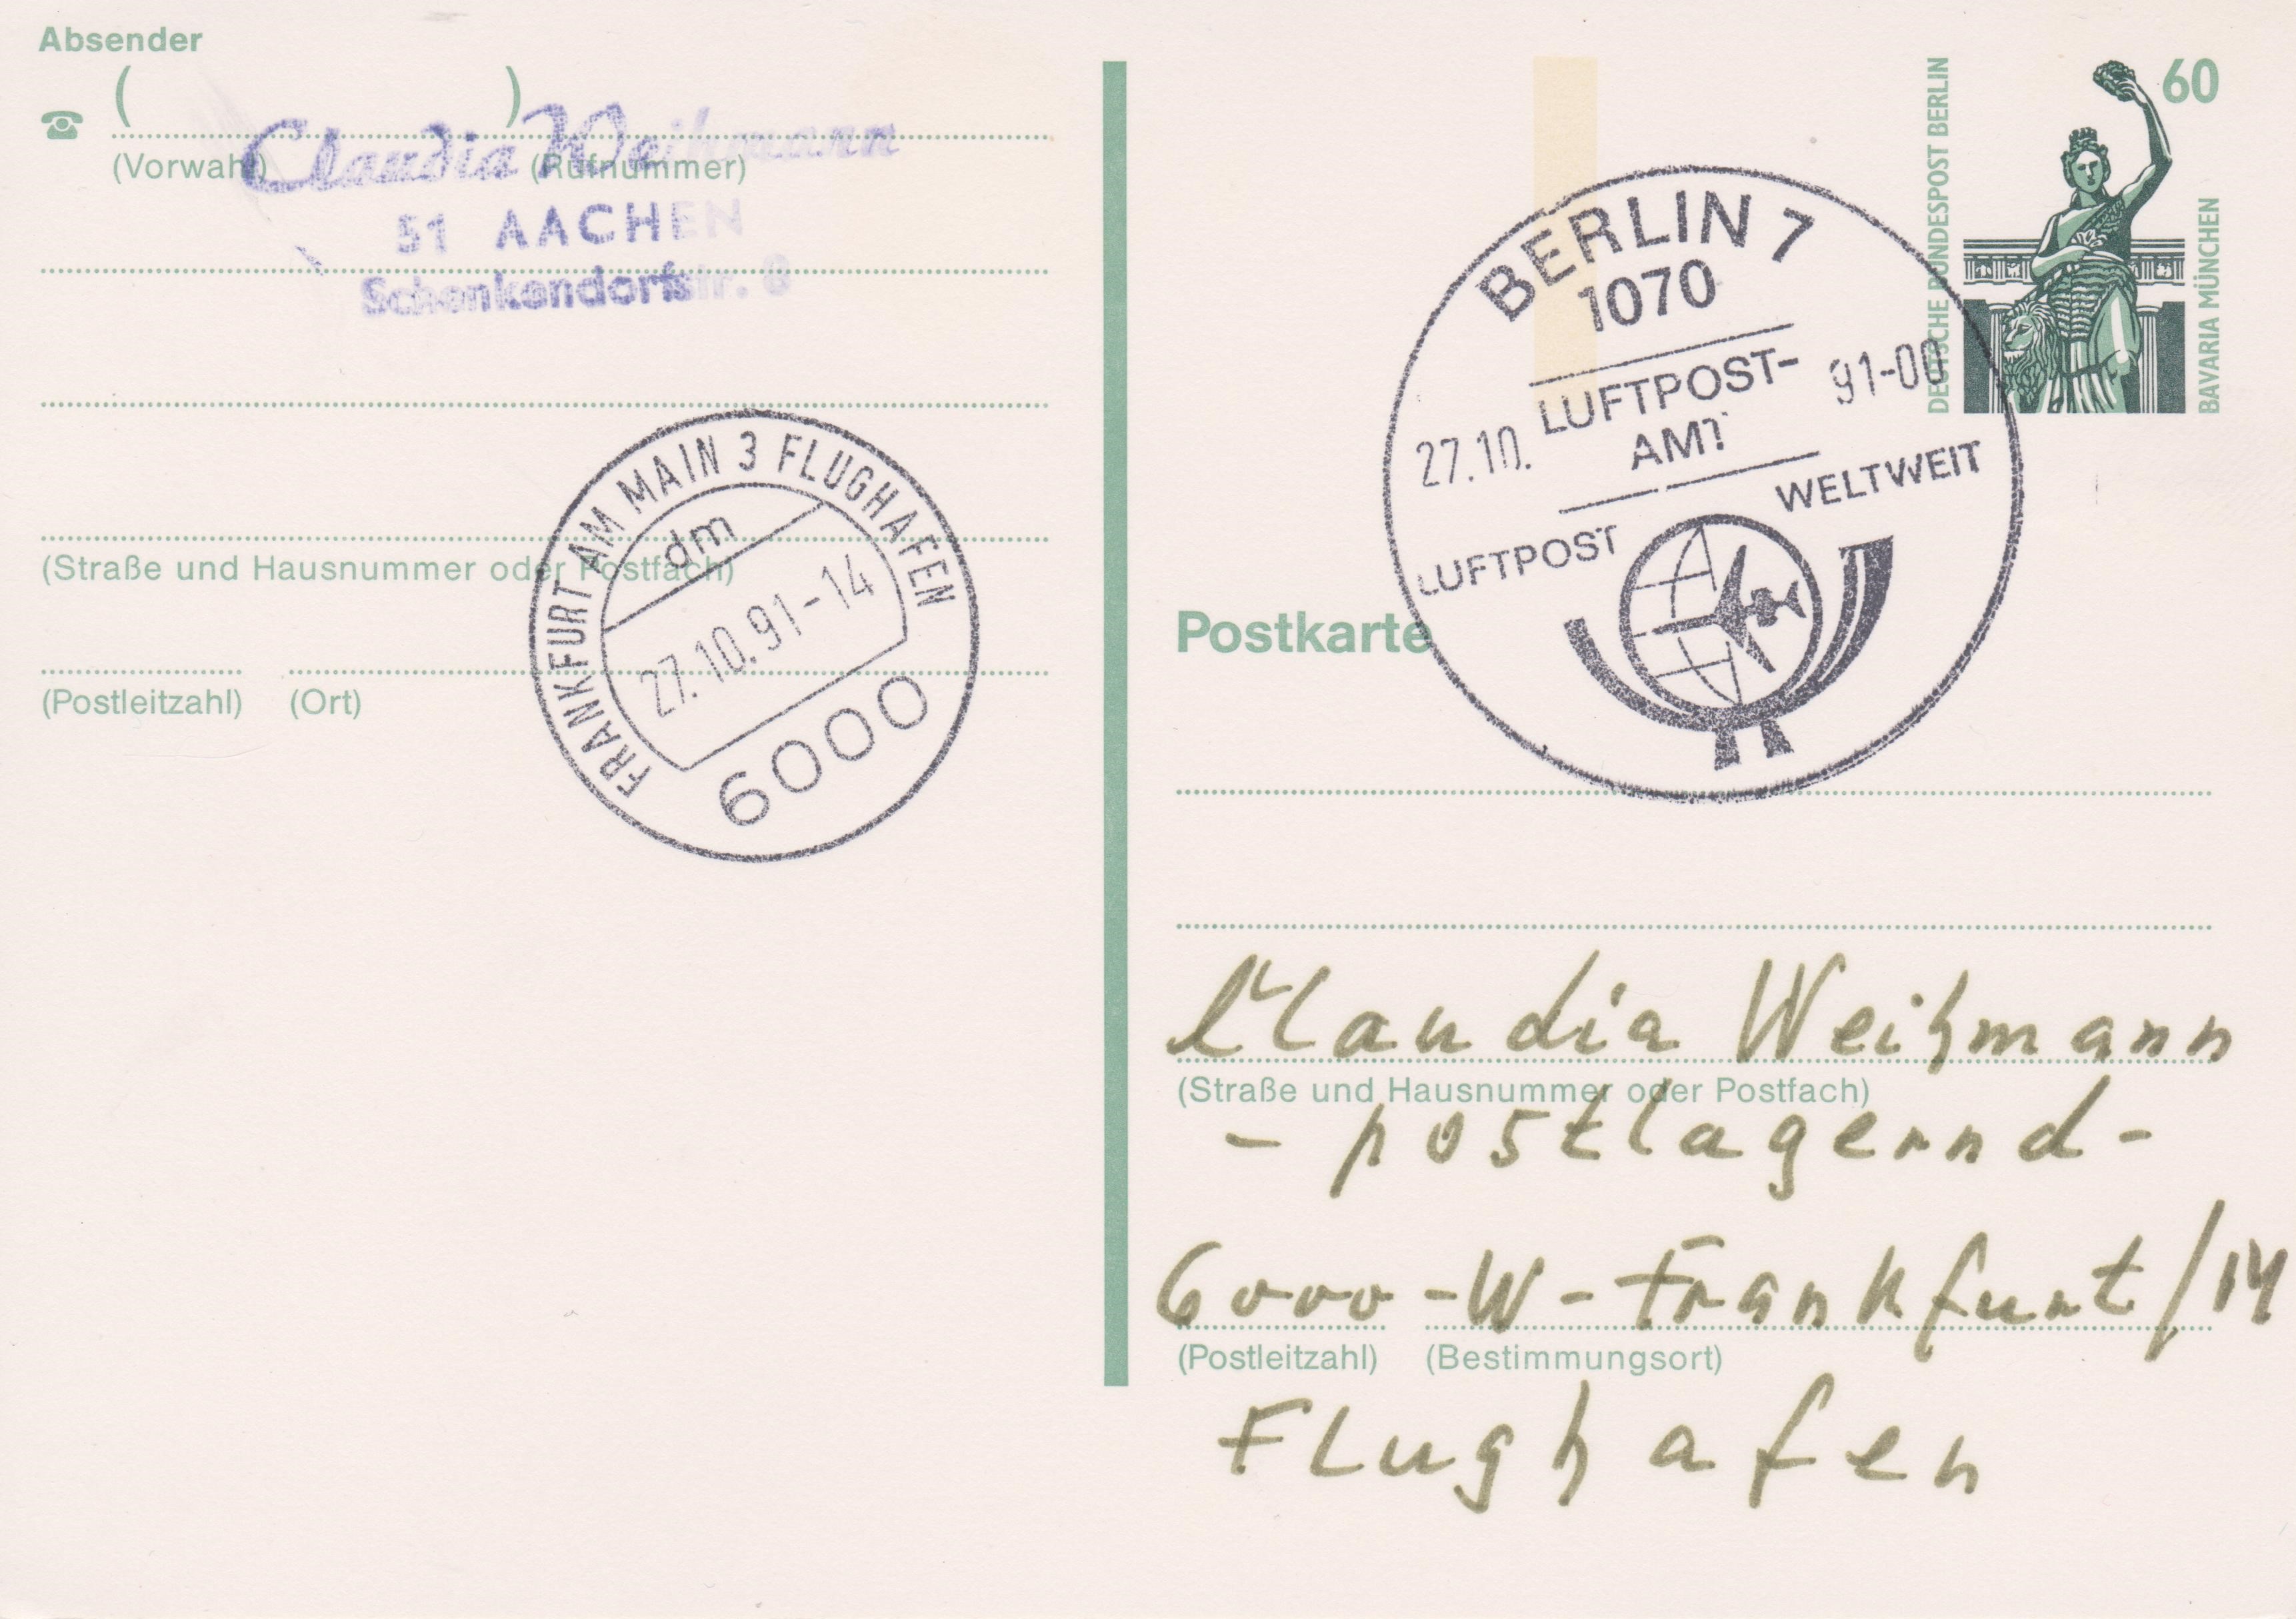 Absender
( )
(Vorwahl) (Rufnummer)
Claudia Weihmann
51 AACHEN
Schenkendorfstr. 8
(Straße und Hausnummer oder Postfach)
(Postleitzahl) (Ort)
FRANKFURT AM MAIN 3 FLUGHAFEN
dm
27.10.91-14
6000
60
DEUTSCHE BUNDESPOST BERLIN
BAVARIA MÜNCHEN
BERLIN 7
1070
LUFTPOST-
AMT
27.10. 91-00
LUFTPOST WELTWEIT
Postkarte
Claudia Weihmann
(Straße und Hausnummer oder Postfach)
- postlagernd -
6000 - W - Frankfurt / 14
(Postleitzahl) (Bestimmungsort)
Flughafen